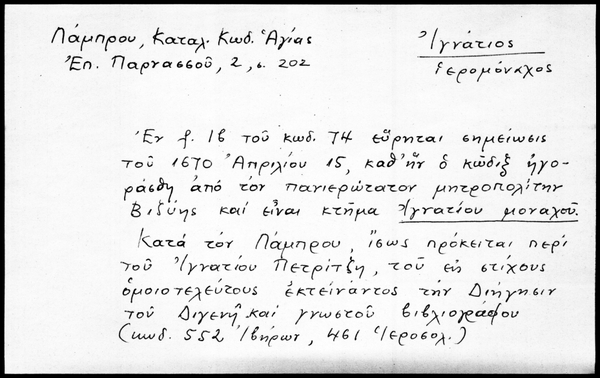 Λάμπρου, Καταλ. Κωδ. Ἁγίας
Ἐπ. Παρνασσοῦ, 2, σ. 202
Ἰγνάτιος
ἱερομόναχος
Ἐν f. 1β τοῦ κωδ. 74 εὕρηται σημείωσις
τοῦ 1670 Ἀπριλίου 15, καθ' ἣν ὁ κῶδιξ ἠγο-
ράσθη ἀπὸ τὸν πανιερώτατον μητροπολίτην
Βιζύης καὶ εἶναι κτῆμα Ἰγνατίου μοναχοῦ.
Κατὰ τὸν Λάμπρου, ἴσως πρόκειται περὶ
τοῦ Ἰγνατίου Πετρίτζη, τοῦ ἐν στίχους
ὁμοιοτελεύτους ἐκτείναντος τὴν Διήγησιν
τοῦ Διγενῆ καὶ γνωστοῦ βιβλιογράφου
(κωδ. 552 Ἰβήρων, 461 Ἱεροσολ.)